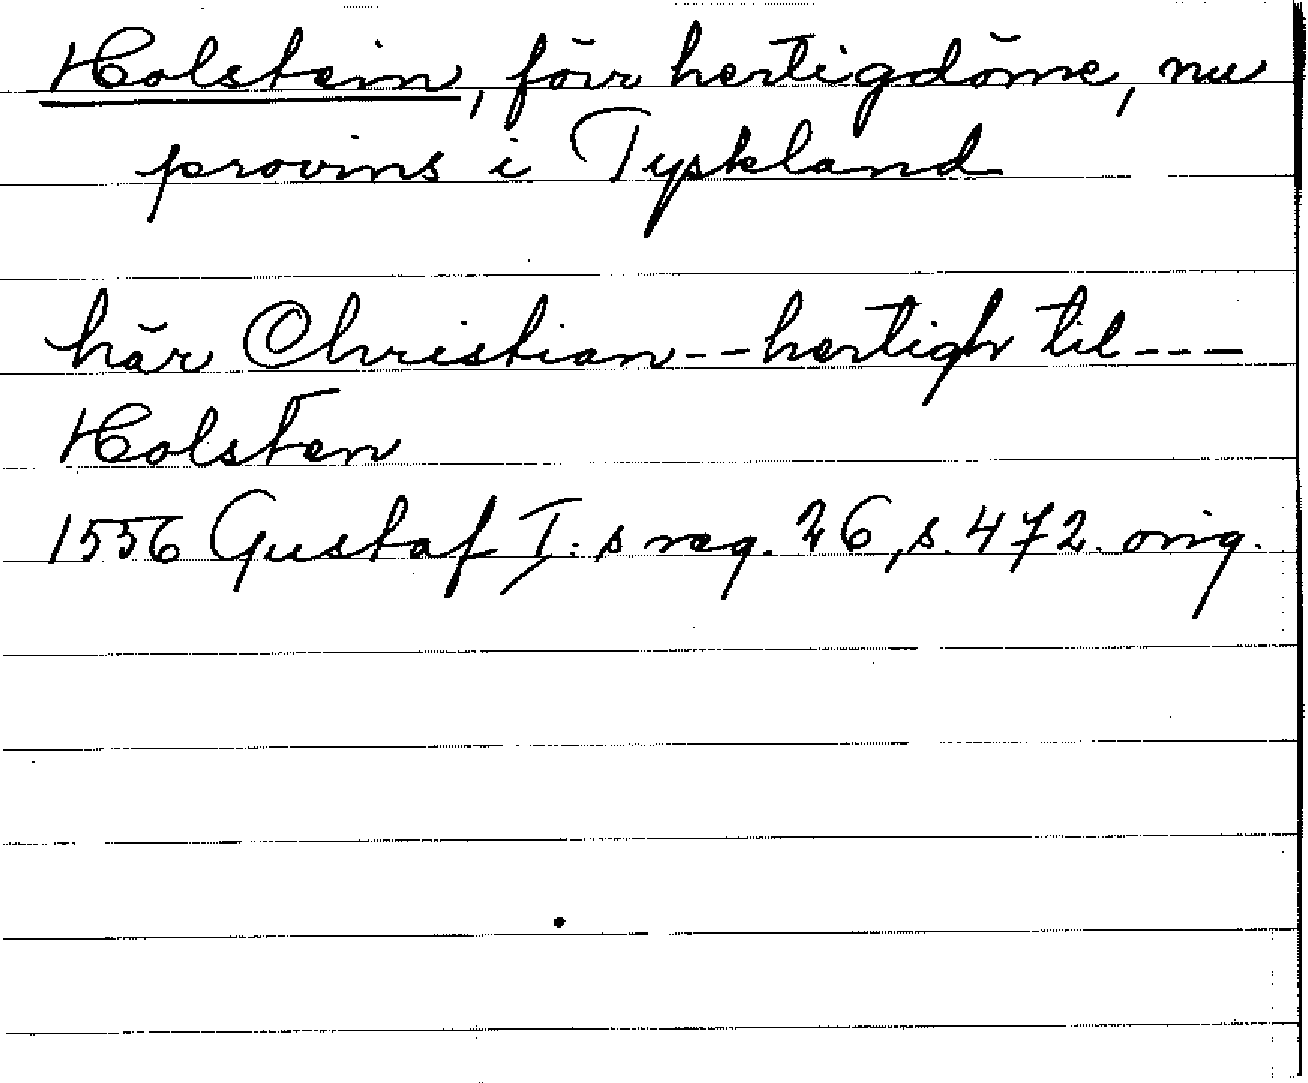 Holstein, förr hertigdöme, nu
provins i Tyskland
här Christian -- hertigh til ---
Holsten
1556 Gustaf I:s reg. 26, s. 472. orig.